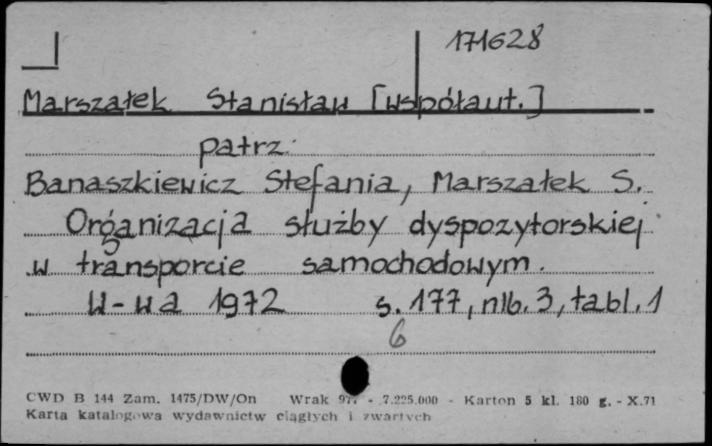 171628
Marszałek Stanisław [współaut.]
patrz:
Banaszkiewicz Stefania, Marszałek S.
Organizacja służby dyspozytorskiej
w transporcie samochodowym.
W-wa 1972 s. 177, nlb. 3, tabl. 1
6
CWD B 144 Zam. 1475/DW/On Wrak - 7.225.000 - Karton 5 kl. 180 g. - X.71
Karta katalogowa wydawnictw ciągłych i zwartych